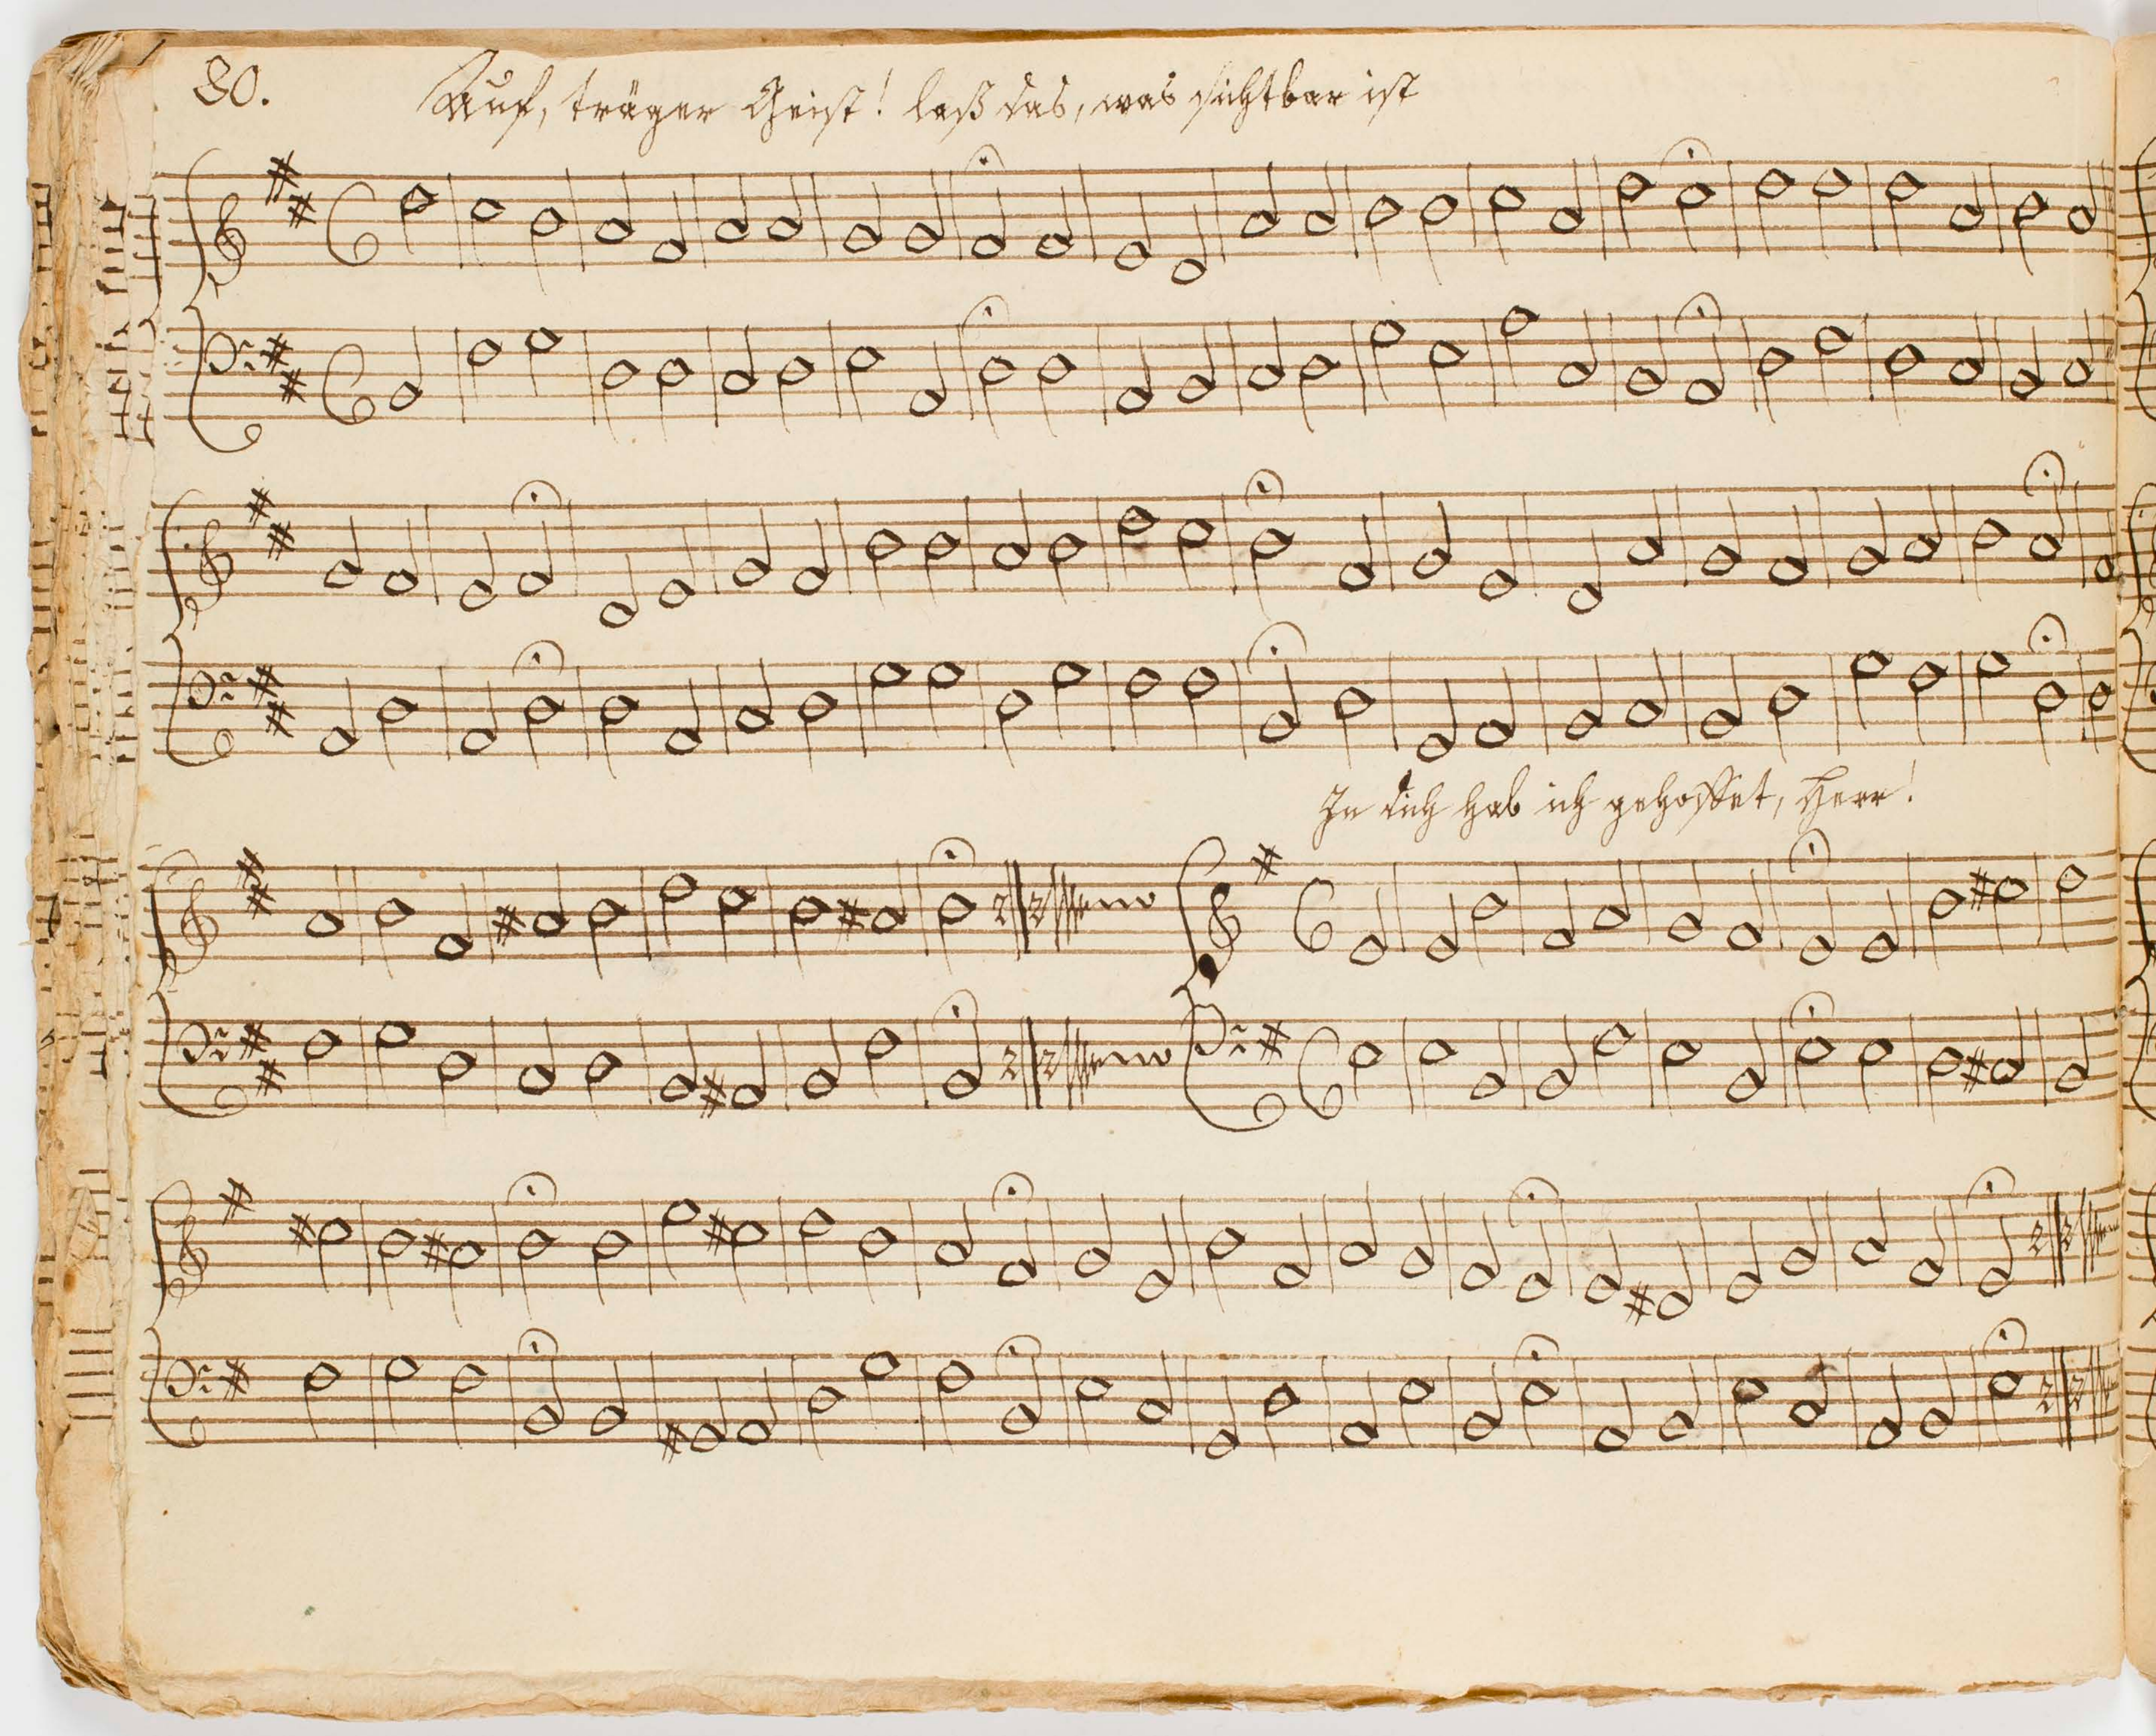 80.
Auf, träger Geist! laß das, was sichtbar ist
In dich hab ich gehoffet, Herr!